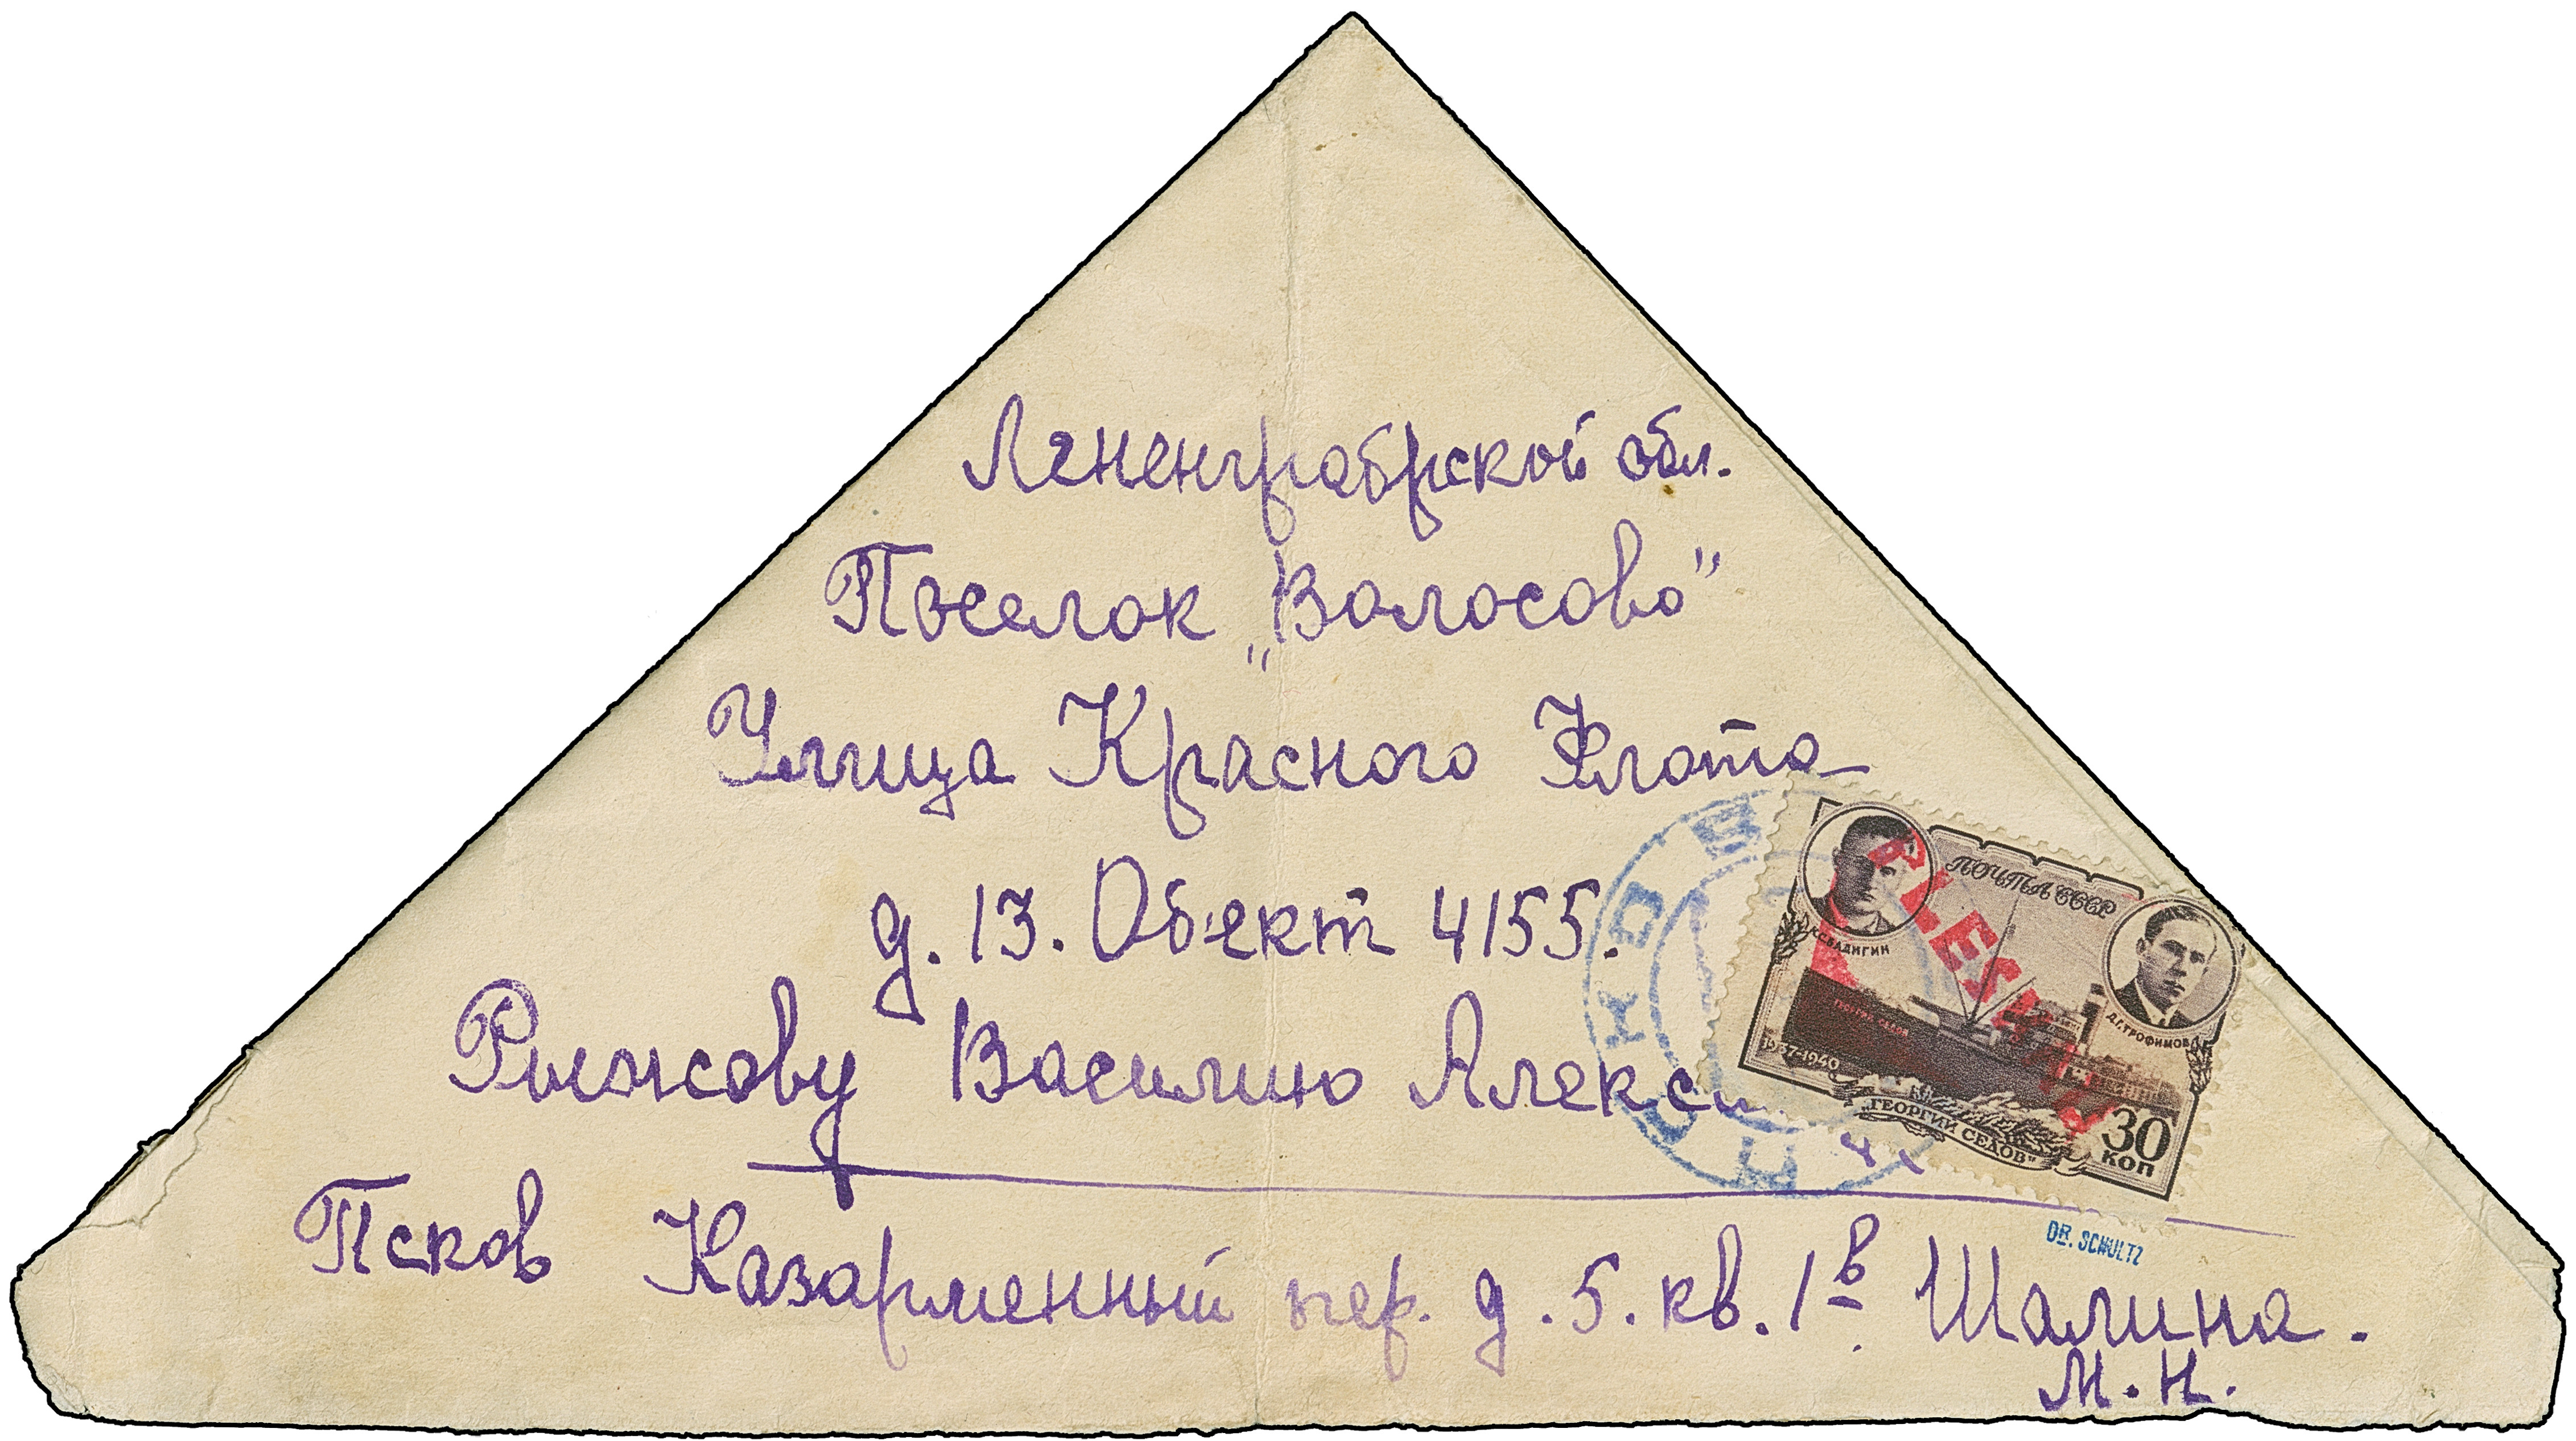 Лененградрской обл.
Поселок „Волосово"
Улица Красного Флота
д. 13. Обект 4155.
Рыжову Василию
Псков Казарменный пер. д. 5. кв. 1в Шалина.
М. Н.
ПОЧТА СССР
К.С.БАДИГИН
Д.Г.ТРОФИМОВ
1937-1940
"ГЕОРГИЙ СЕДОВ"
30
КОП
DR. SCHULTZ